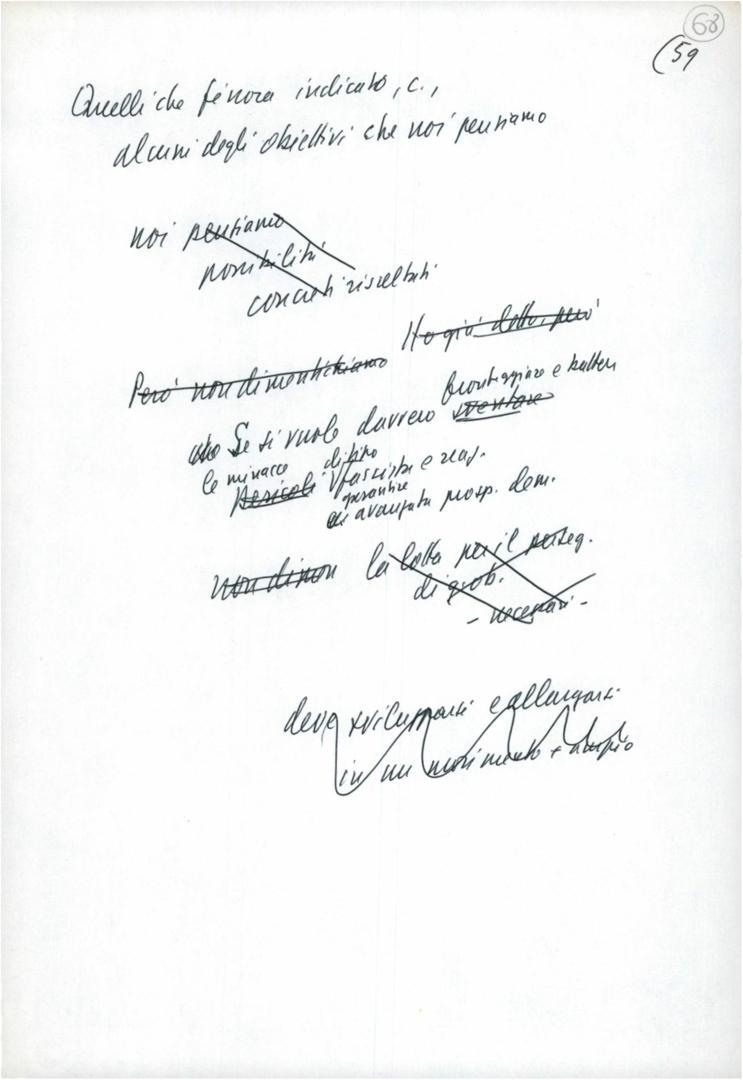 68
(59
Quelli che finora indicato, c.,
alcuni degli obiettivi che noi pensiamo
noi pensiamo
possibilità
concreti risultati
Ho già detto, però
Però non dimentichiamo
fronteggiare e battere
Se si vuole davvero sventare
le minacce di tipo
pericoli fascista e reaz.
garantire
di avanzata prosp. dem.
non dimen la lotta per il perseg.
di q. ob.
- necessari -
deve svilupparsi e allargarsi
in un movimento + ampio